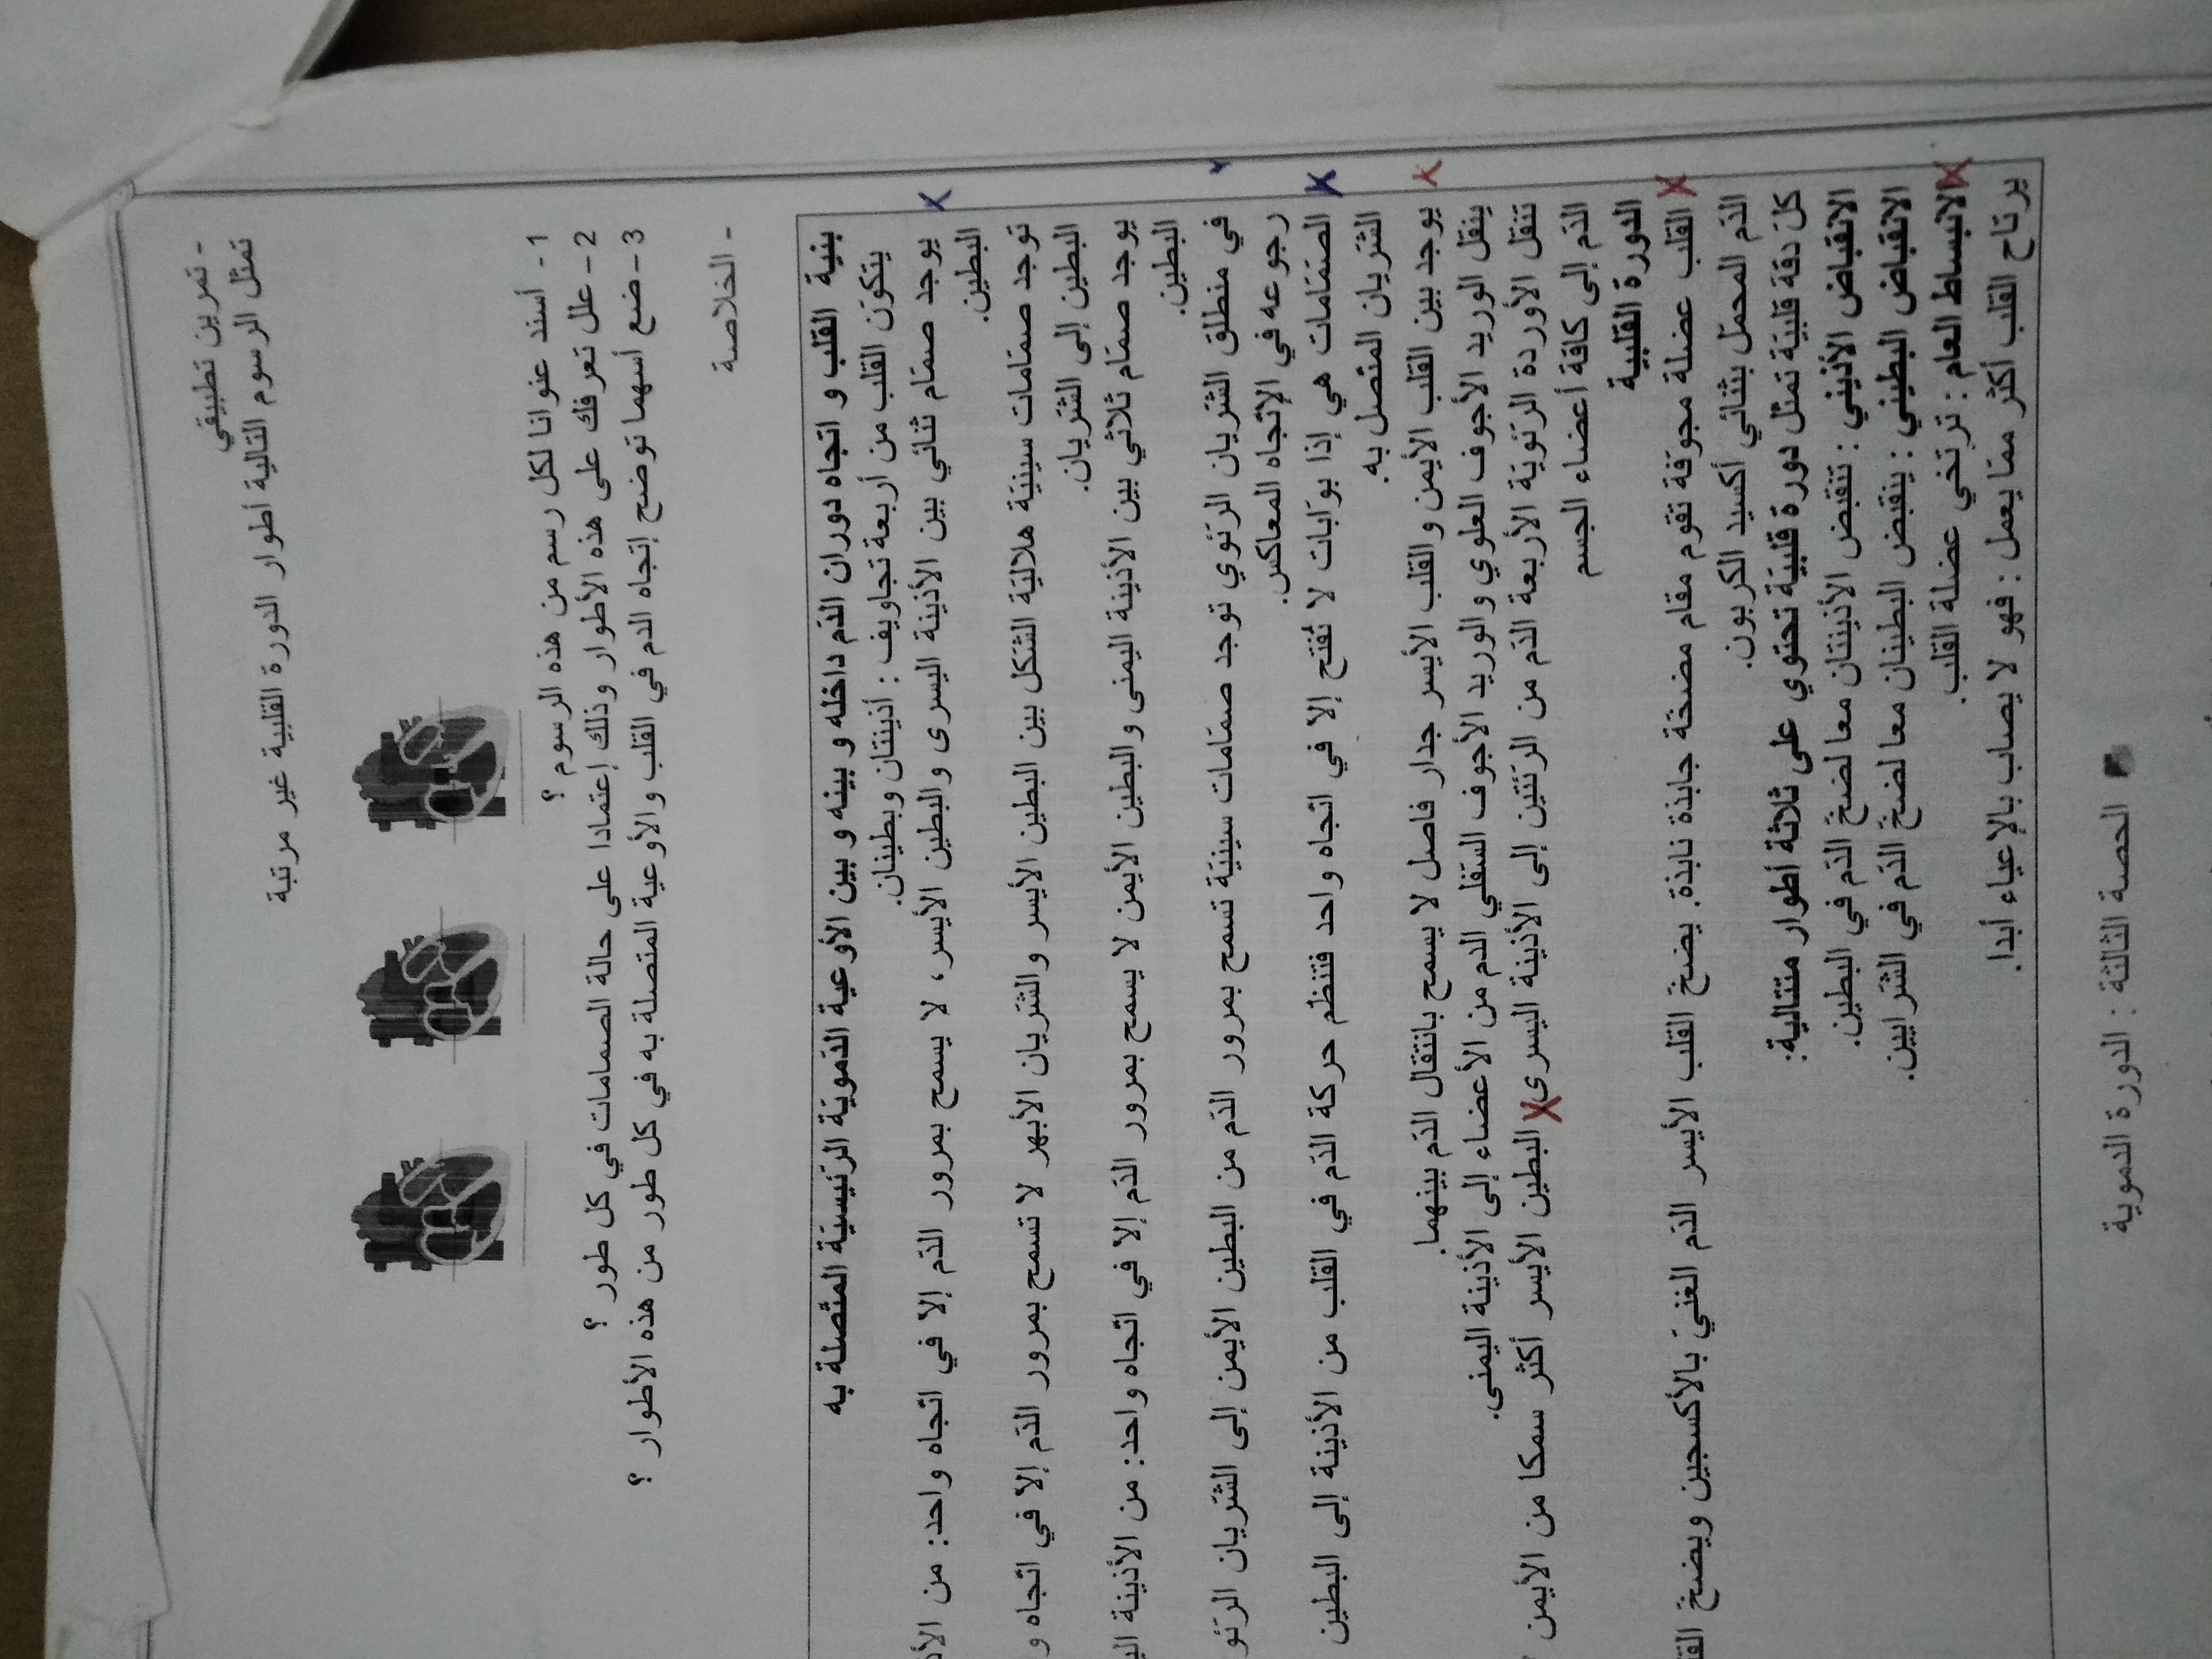 - تمرين تطبيقي
تمثل الرسوم التالية أطوار الدورة القلبية غير مرتبة
1 - أسند عنوانا لكل رسم من هذه الرسوم ؟
2 - علل تعرفك على هذه الأطوار وذلك إعتمادا على حالة الصمامات في كل طور ؟
3 - ضع أسهما توضح إتجاه الدم في القلب والأوعية المتصلة به في كل طور من هذه الأطوار ؟
- الخلاصة
بنية القلب و اتجاه دوران الدّم داخله و بينه و بين الأوعية الدّمويّة الرّئيسيّة المتّصلة به
يتكوّن القلب من أربعة تجاويف : أذينتان وبطينان.
يوجد صمّام ثنائي بين الأذينة اليسرى والبطين الأيسر، لا يسمح بمرور الدّم إلاّ في اتجاه واحد: من
البطين.
توجد صمّامات سينيّة هلاليّة الشّكل بين البطين الأيسر والشّريان الأبهر لا تسمح بمرور الدّم إلاّ في اتجاه
البطين إلى الشّريان.
يوجد صمّام ثلاثي بين الأذينة اليمنى والبطين الأيمن لا يسمح بمرور الدّم إلاّ في اتّجاه واحد: من الأذينة
البطين.
في منطلق الشّريان الرّئوي توجد صمّامات سينيّة تسمح بمرور الدّم من البطين الأيمن إلى الشّريان
رجوعه في الإتجاه المعاكس.
الصّمّامات هي إذا بوّابات لا تُفتح إلاّ في اتجاه واحد فتنظّم حركة الدّم في القلب من الأذينة إلى البطين
الشّريان المتّصل به.
يوجد بين القلب الأيمن والقلب الأيسر جدار فاصل لا يسمح بانتقال الدّم بينهما.
ينقل الوريد الأجوف العلوي والوريد الأجوف السّفلي الدم من الأعضاء إلى الأذينة اليمنى.
تنقل الأوردة الرّئويّة الأربعة الدّم من الرّئتين إلى الأذينة اليسرى X البطين الأيسر أكثر سمكا من الأيمن
الدّم إلى كافّة أعضاء الجسم
الدورة القلبية
القلب عضلة مجوّفة تقوم مقام مضخّة جابذة نابذة. يضخّ القلب الأيسر الدّم الغنيّ بالأكسجين ويضخّ
الدّم المحمّل بثنائي أكسيد الكربون.
كلّ دقّة قلبيّة تمثّل دورة قلبيّة تحتوي على ثلاثة أطوار متتالية:
الانقباض الأذيني : تنقبض الأذينتان معا لضخّ الدّم في البطين.
الانقباض البطيني : ينقبض البطينان معا لضخّ الدّم في الشّرايين.
الانبساط العام : ترتخي عضلة القلب.
يرتاح القلب أكثر ممّا يعمل : فهو لا يصاب بالإعياء أبدا.
الحصة الثالثة : الدورة الدموية